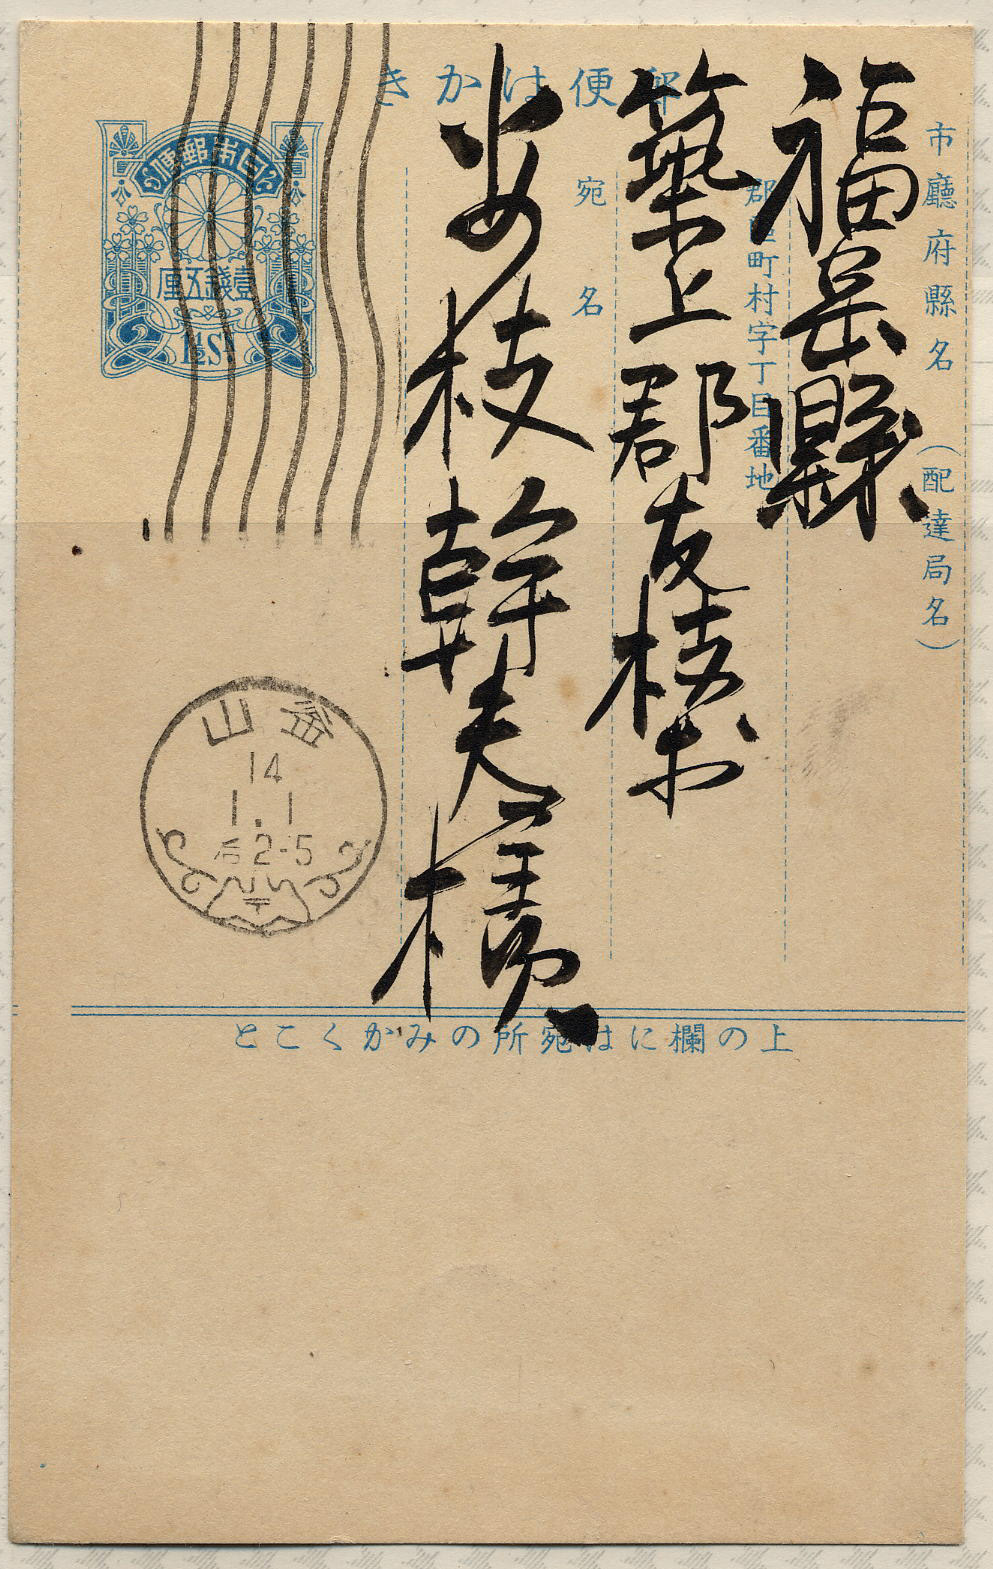 郵便はかき
市廳府縣名(配達局名)
福岡縣
郡區町村字丁目番地
築上郡友枝村
宛名
安枝幹夫様
日本郵便
壹錢五厘
1½Sn
釜山
14
1.1
后2-5
上の欄には宛所のみかくこと